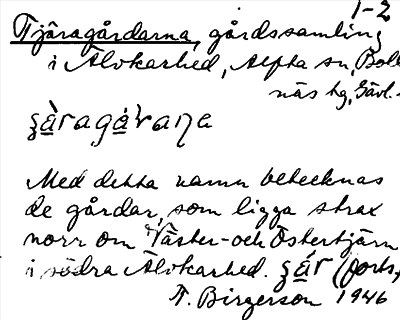 1-2
Tjäragårdarna, gårdssamling
i Älvkarhed, Alfta sn, Boll-
näs hg, Gävl.
Med detta namn betecknas
de gårdar, som ligga strax
norr om Väster- och Östertjärn
i södra Älvkarhed. (forts.)
T. Birgerson 1946